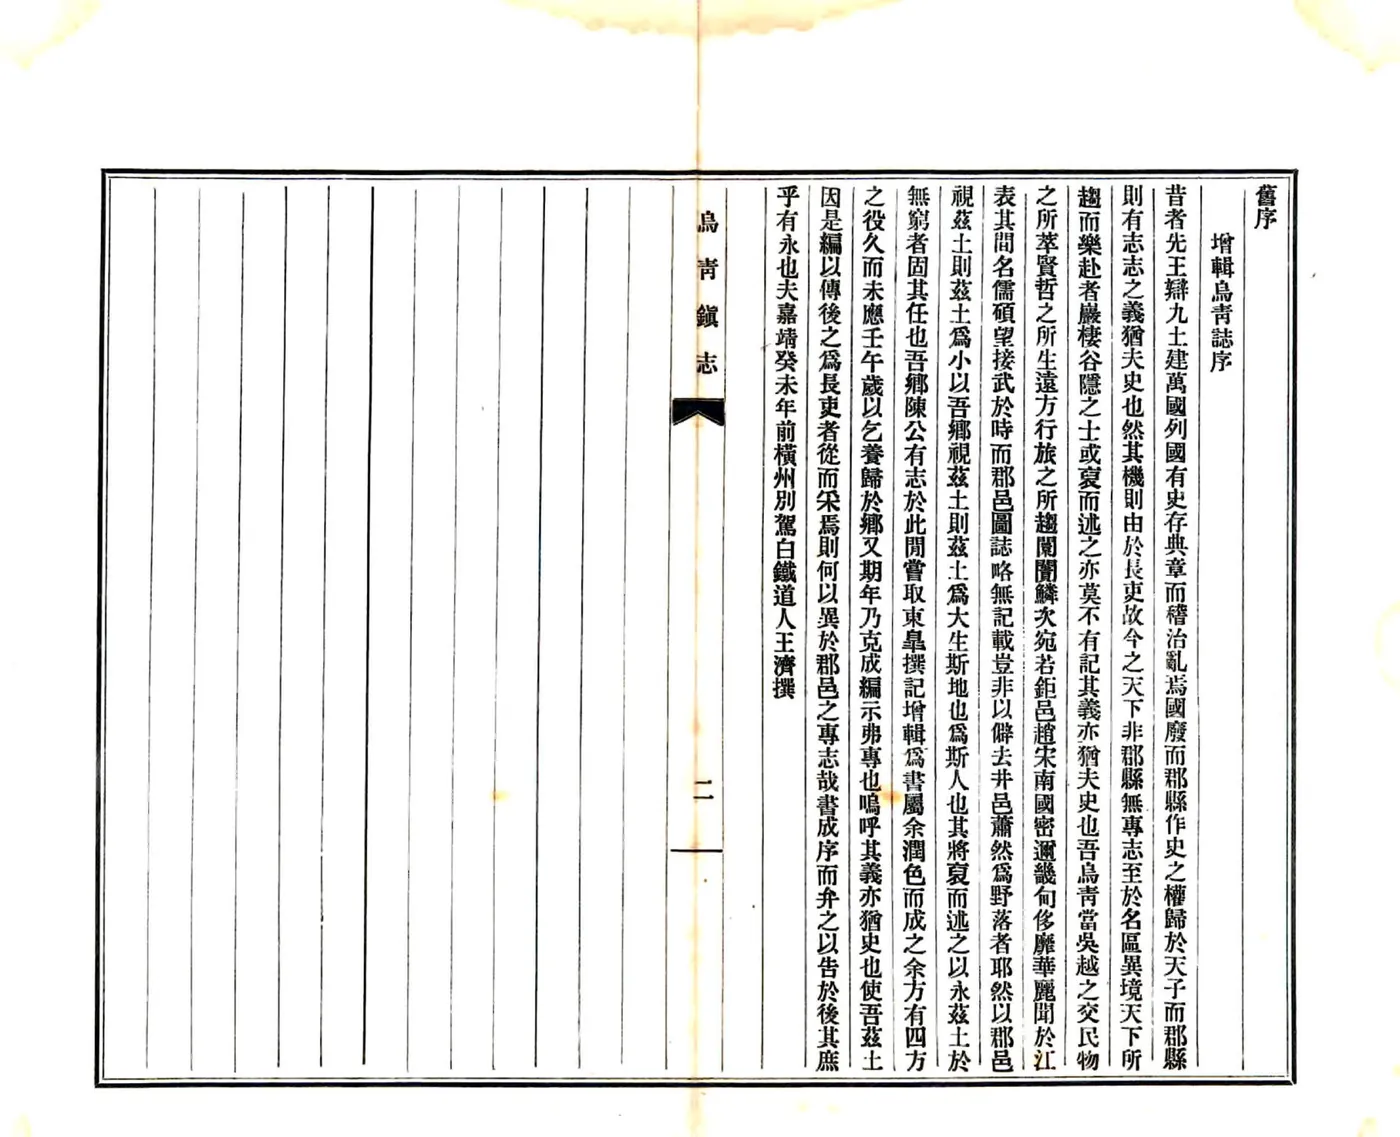 舊序
增輯烏青誌序
昔者先王辯九土建萬國列國有史存典章而稽治亂焉國廢而郡縣作史之權歸於天子而郡縣
則有志志之義猶夫史也然其機則由於長吏故今之天下非郡縣無專志至於名區異境天下所
趨而樂赴者巖棲谷隱之士或裒而述之亦莫不有記其義亦猶夫史也吾烏青當吳越之交民物
之所萃賢哲之所生遠方行旅之所趨闤闠鱗次宛若鉅邑趙宋南國密邇畿甸侈靡華麗聞於江
表其間名儒碩望接武於時而郡邑圖誌略無記載豈非以僻去井邑蕭然爲野落者耶然以郡邑
視茲土則茲土爲小以吾鄉視茲土則茲土爲大生斯地也爲斯人也其將裒而述之以永茲土於
無窮者固其任也吾鄉陳公有志於此閒嘗取東皐撰記增輯爲書屬余潤色而成之余方有四方
之役久而未應壬午歲以乞養歸於鄉又期年乃克成編示弗專也嗚呼其義亦猶史也使吾茲土
因是編以傳後之爲長吏者從而采焉則何以異於郡邑之專志哉書成序而弁之以告於後其庶
乎有永也夫嘉靖癸未年前橫州別駕白鐵道人王濟撰
烏青鎭志
二